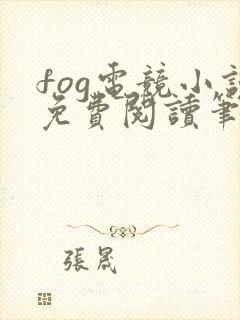 fog電競小說
免費閱讀筆
張晟